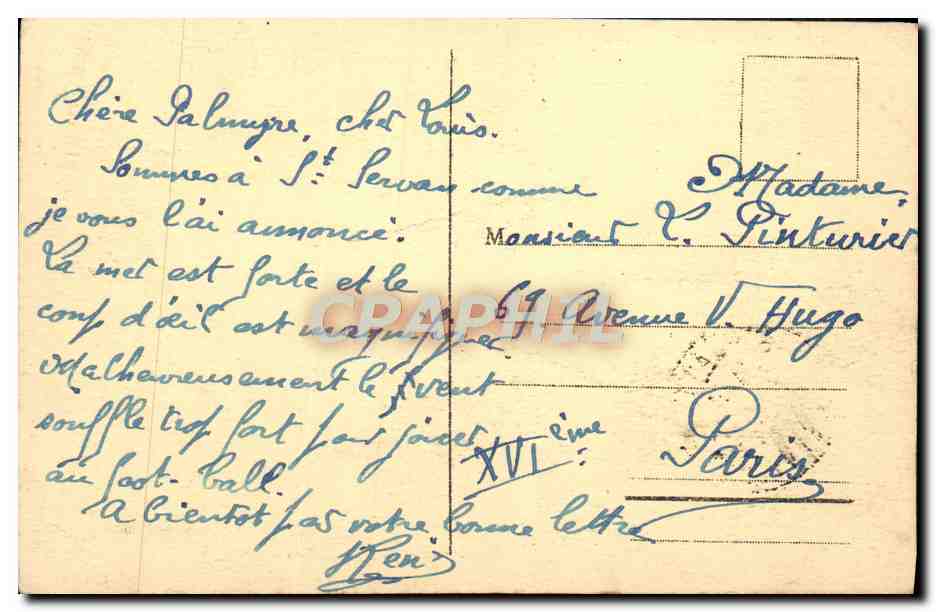 Chère Palmyre, cher Louis.
Sommes à St Servan comme
je vous l'ai annoncé.
La mer est forte et le
coup d'œil est magnifique
Malheureusement le vent
souffle trop fort pour jouer
au foot-ball.
A bientôt par votre bonne lettre
Madame,
Monsieur L. Pinturier
69 Avenue V. Hugo
XVI ème
Paris
CPAPHIL